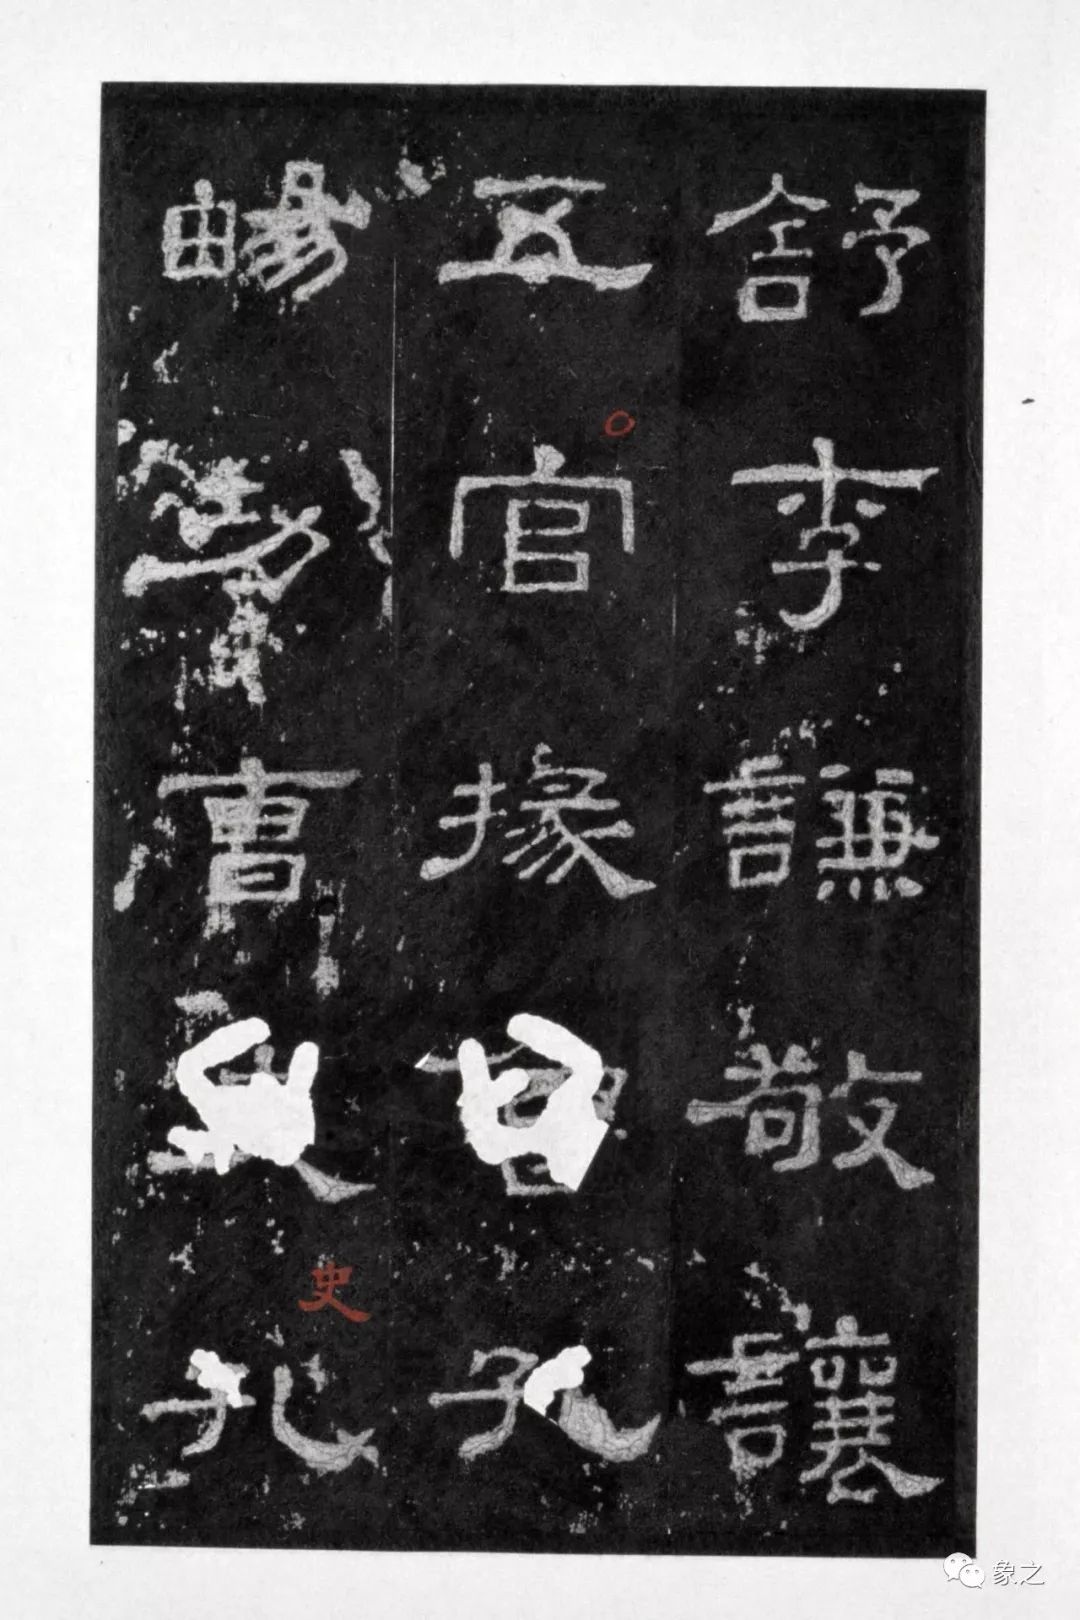 舒李謙敬讓
五官掾魯孔
暢功曹史孔
史
象之